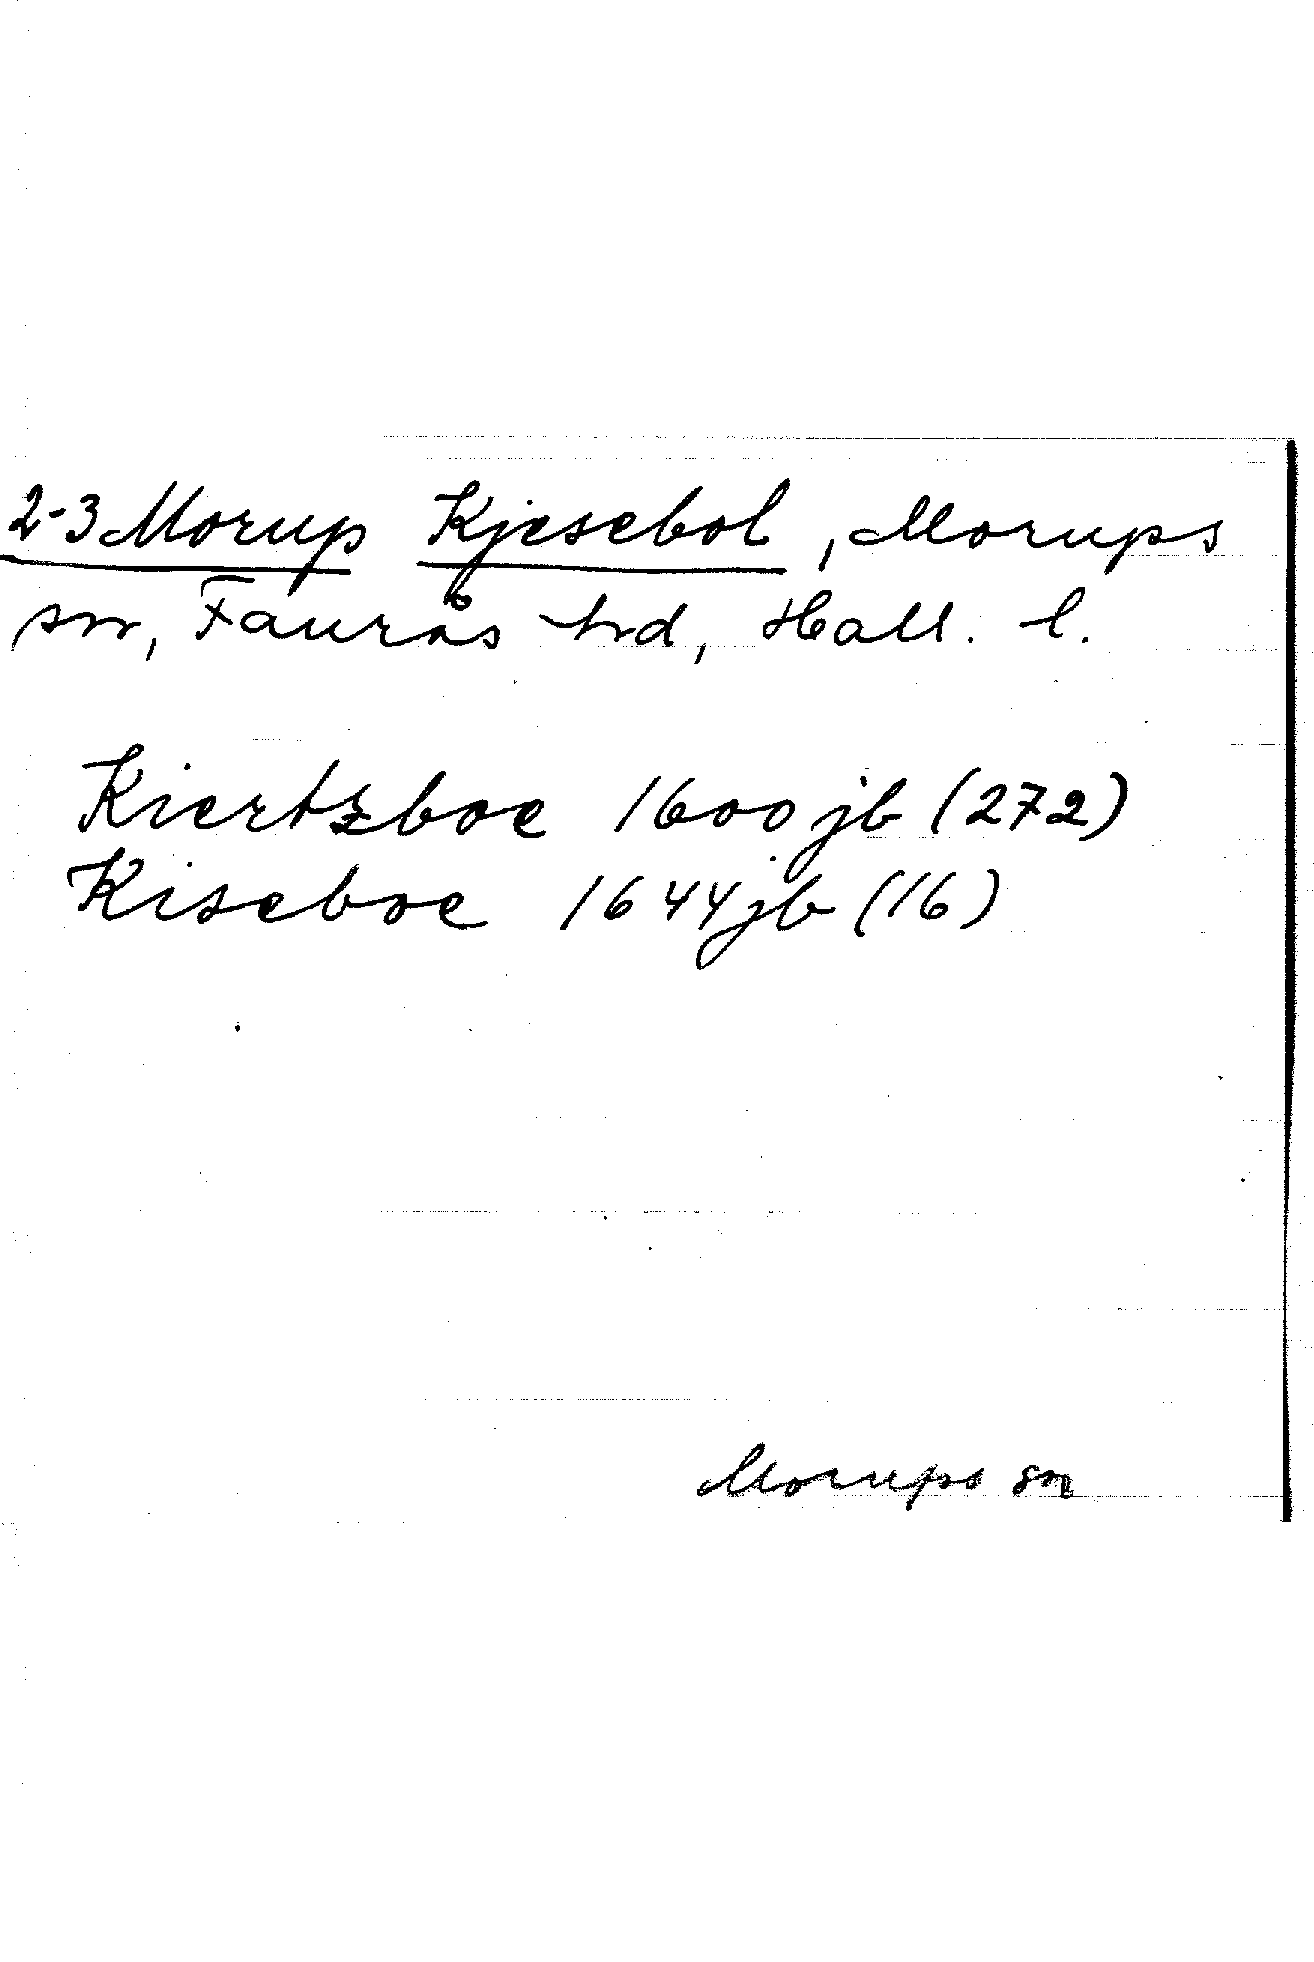 2-3 Morup Kjesebol, Morups
sn, Faurås hd, Hall. l.
Kiertzboe 1600 jb (272)
Kiseboe 1644 jb (16)
Morups sn